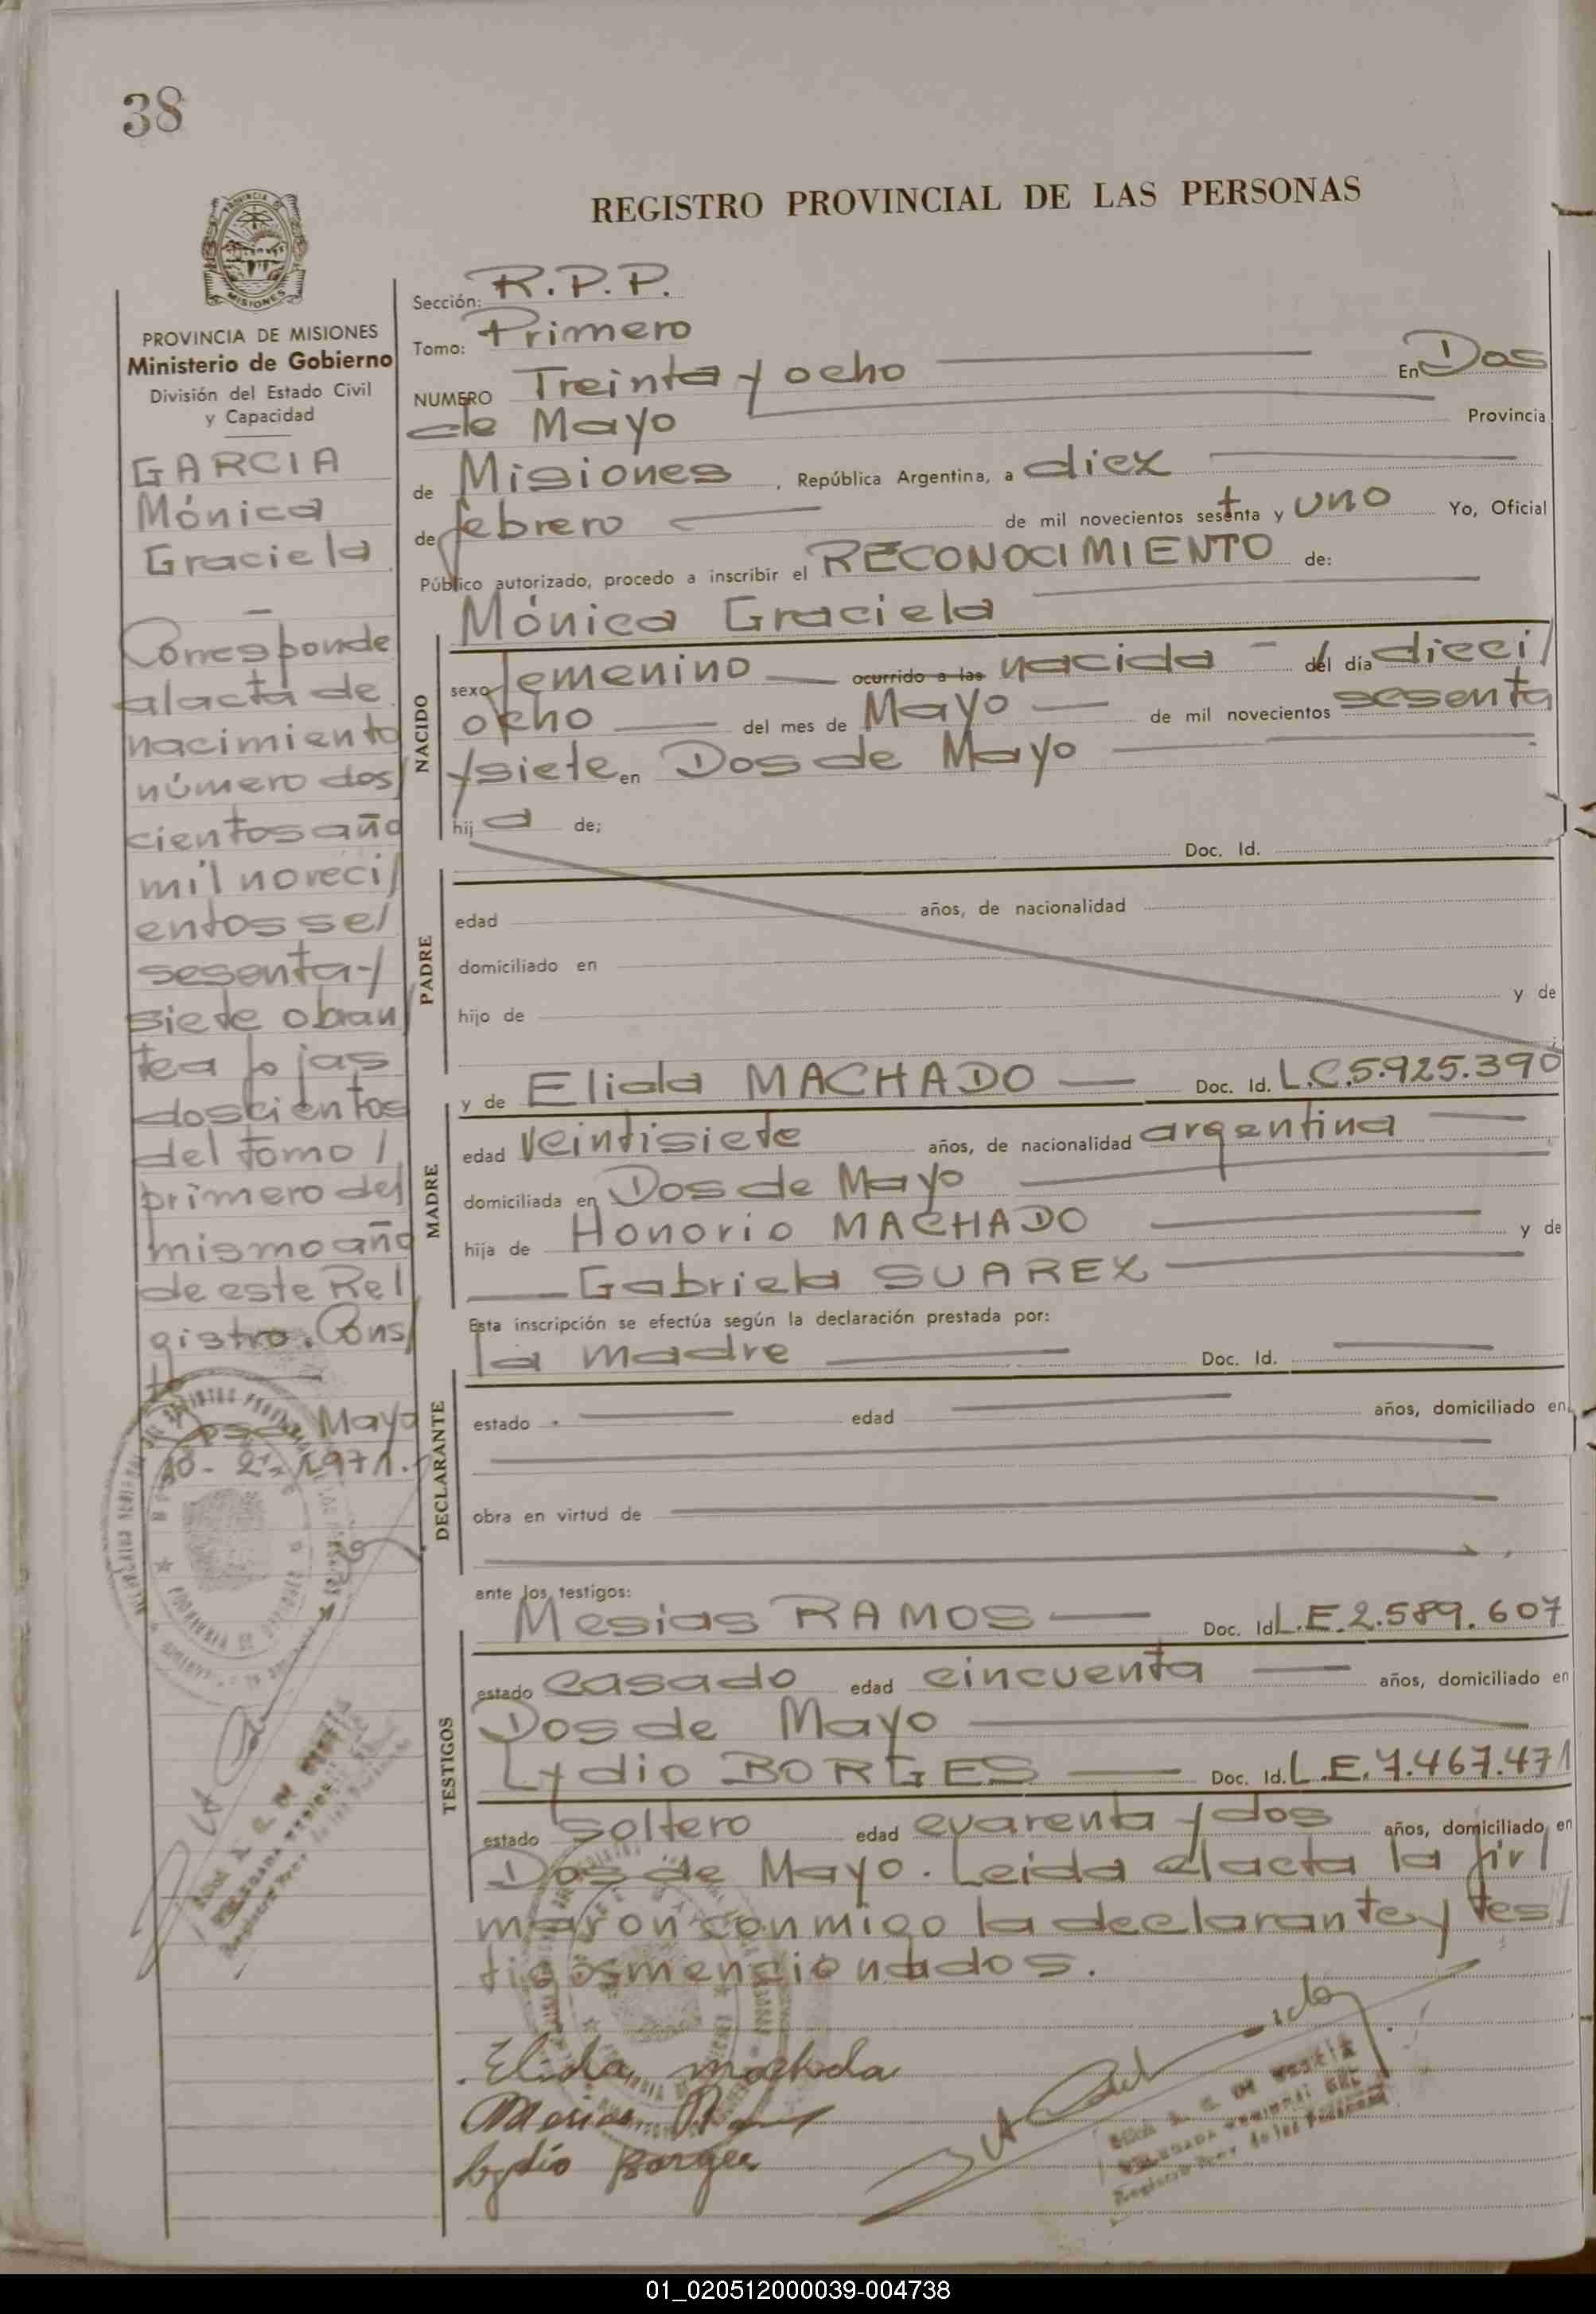 38
REGISTRO PROVINCIAL DE LAS PERSONAS
PROVINCIA DE MISIONES
Ministerio de Gobierno
División del Estado Civil
y Capacidad
GARCIA
Mónica
Graciela
Corresponde
al acta de
nacimiento
número dos
cientos año
mil noveci/
entos se/
sesenta y/
siete obran/
te a fojas
doscientos
del tomo /
primero del
mismo año
de este Re/
gistro. Cons/
te
Dos de Mayo
10-2-1971.
Sección: R.P.P.
Tomo: Primero
NUMERO Treinta y ocho En Dos
de Mayo Provincia
de Misiones, República Argentina, a diez
de febrero de mil novecientos setenta y uno Yo, Oficial
Público autorizado, procedo a inscribir el RECONOCIMIENTO de:
Mónica Graciela
NACIDO
sexo femenino ocurrido a las nacida del día dieci/
ocho del mes de Mayo de mil novecientos sesenta
y siete en Dos de Mayo
hija de;
Doc. Id.
PADRE
edad años, de nacionalidad
domiciliado en
hijo de y de
MADRE
y de Elida MACHADO Doc. Id. L.C.5.925.390
edad veintisiete años, de nacionalidad argentina
domiciliada en Dos de Mayo
hija de Honorio MACHADO y de
Gabriela SUAREZ
Esta inscripción se efectúa según la declaración prestada por:
la madre Doc. Id.
DECLARANTE
estado edad años, domiciliado en
obra en virtud de
ante los testigos:
TESTIGOS
Mesias RAMOS Doc. Id. L.E.2.589.607
estado casado edad cincuenta años, domiciliado en
Dos de Mayo
Lydio BORGES Doc. Id. L.E.7.467.471
estado soltero edad cuarenta y dos años, domiciliado en
Dos de Mayo. Leida el acta la fir/
maron conmigo la declarante y tes/
tigos mensionados.
Elida machado
Mesias
Lydio Borges
01_020512000039-004738